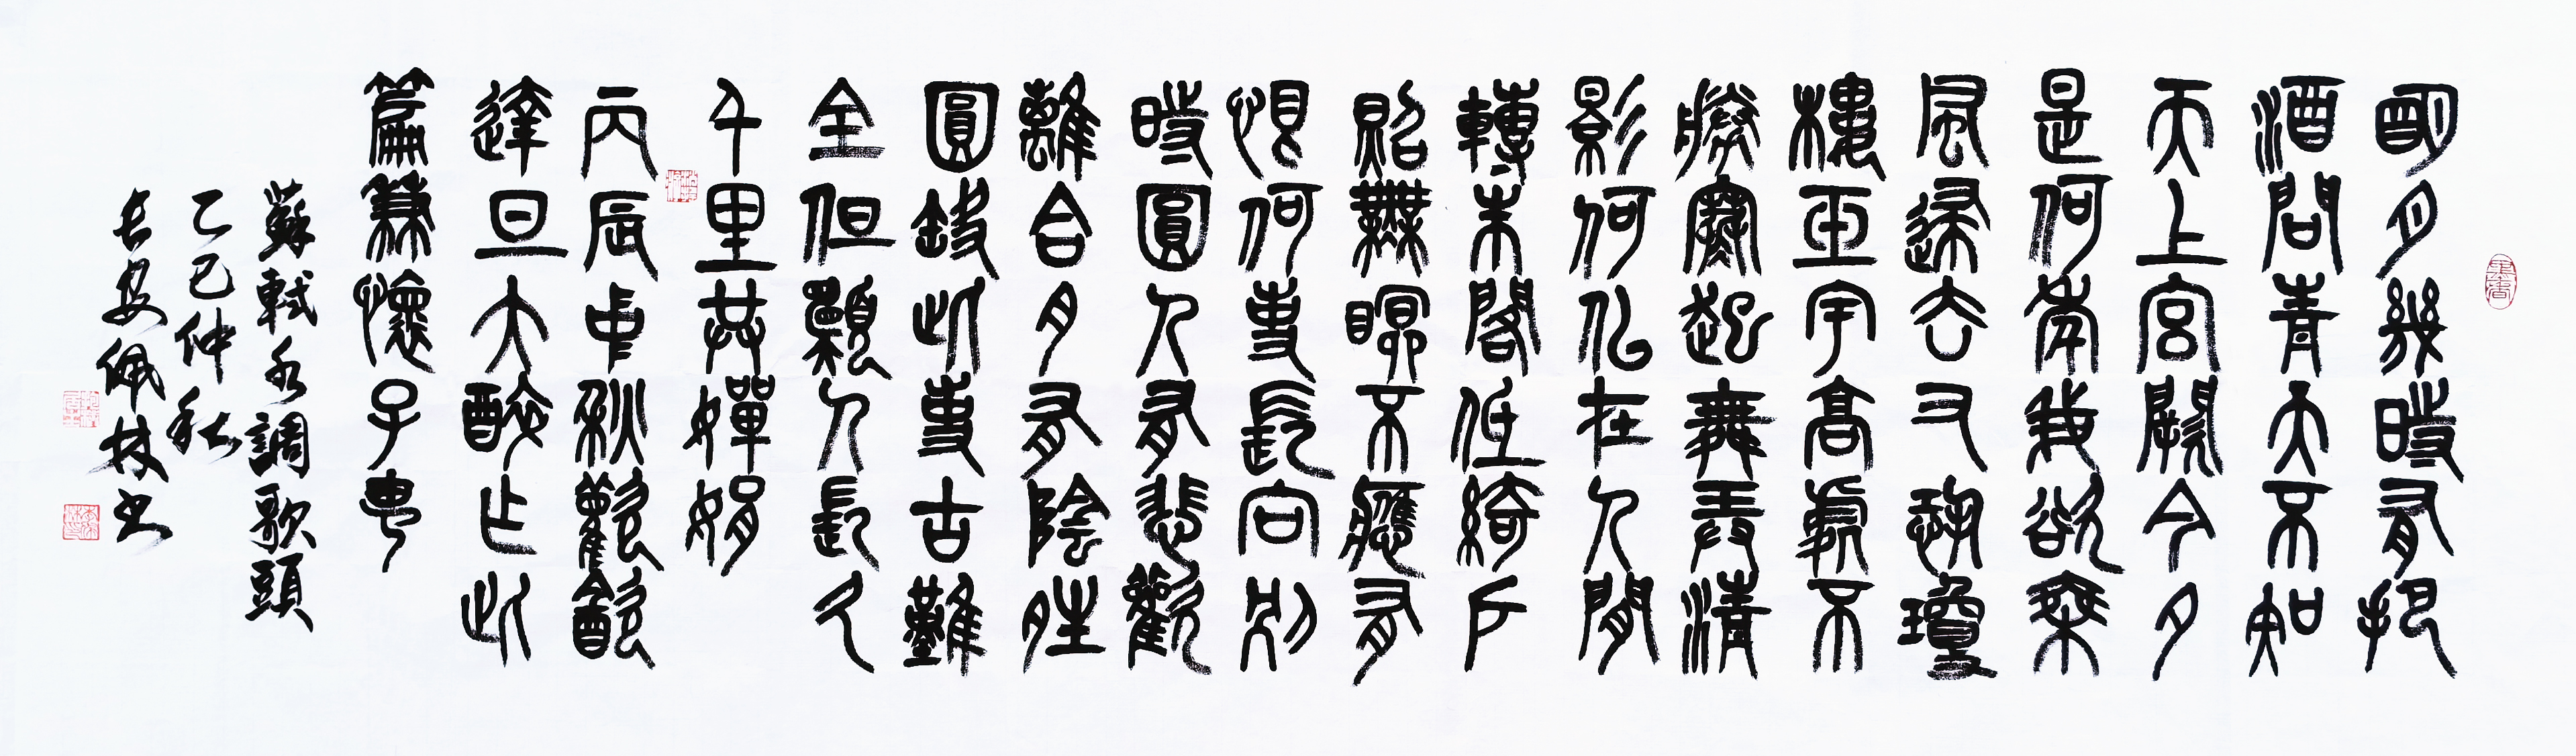 明月幾時有把
酒問青天不知
天上宮闕今夕
是何年我欲乘
風歸去又恐瓊
樓玉宇高處不
勝寒起舞弄清
影何似在人間
轉朱閣低綺戶
照無眠不應有
恨何事長向別
時圓人有悲歡
離合月有陰晴
圓缺此事古難
全但願人長久
千里共嬋娟
丙辰中秋歡飲
達旦大醉作此
篇兼懷子由
蘇軾水調歌頭
乙巳仲秋
長安佩林書